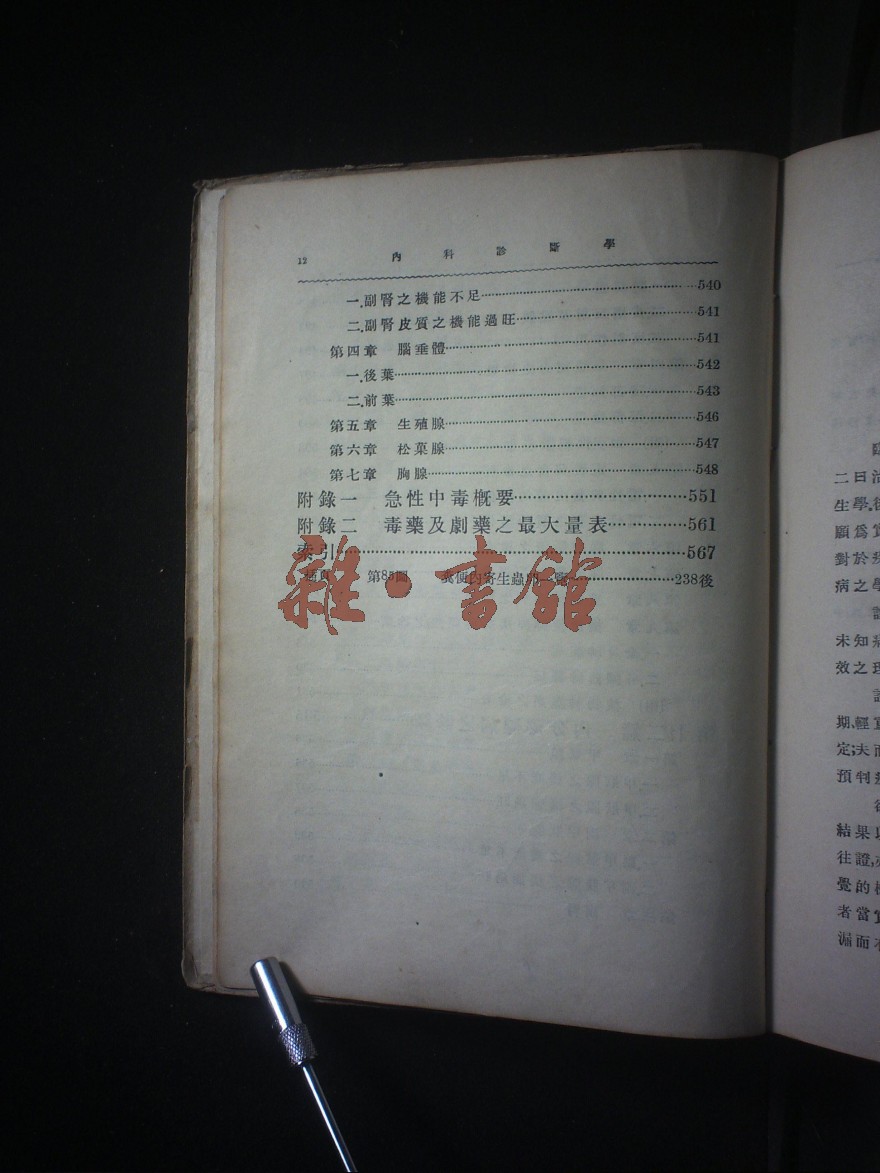 12 內科診斷學
一.副腎之機能不足 540
二.副腎皮質之機能過旺 541
第四章 腦垂體 541
一.後葉 542
二.前葉 543
第五章 生殖腺 546
第六章 松菓腺 547
第七章 胸腺 548
附錄一 急性中毒概要 551
附錄二 毒藥及劇藥之最大量表 561
索引 567
插頁 第85圖 糞便內寄生蟲卵一覽 238後
雜·書館
二曰治
生學,
願爲
對於
病之學
未知病
效之理
期,輕重
定;夫而
預判
結果以
往證,
覺的
者當
漏而